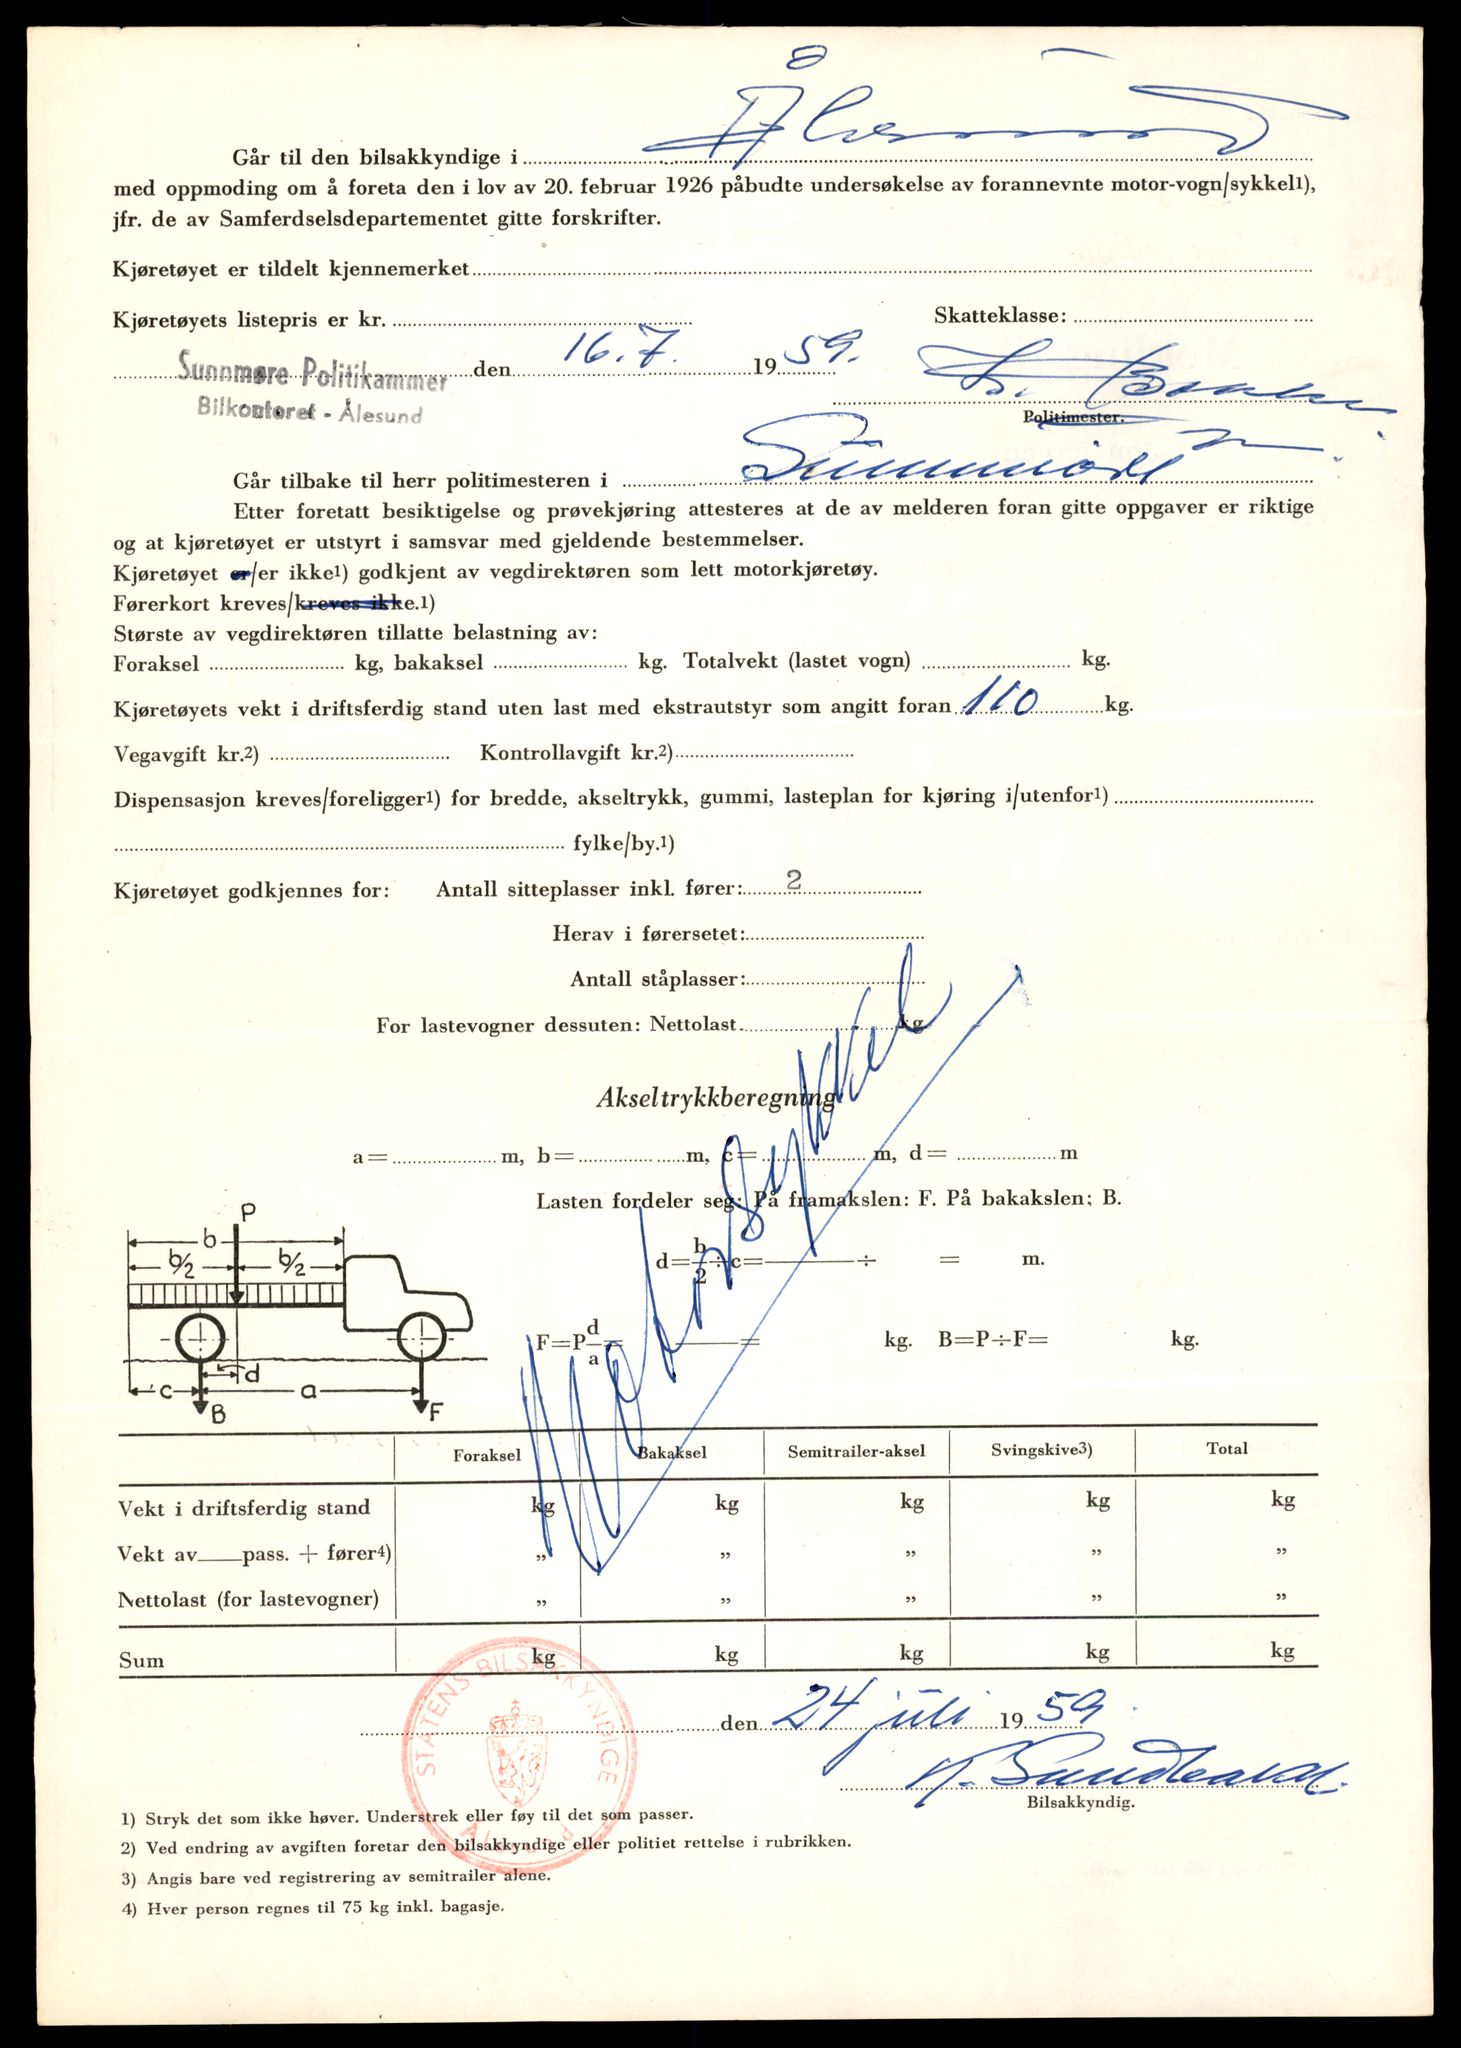 Går til den bilsakkyndige i Ålesund
med oppmoding om å foreta den i lov av 20. februar 1926 påbudte undersøkelse av forannevnte motor-vogn/sykkel1),
jfr. de av Samferdselsdepartementet gitte forskrifter.
Kjøretøyet er tildelt kjennemerket
Kjøretøyets listepris er kr. Skatteklasse:
Sunnmøre Politikammer den 16.7. 1959.
Bilkontoret - Ålesund
Politimester.
Går tilbake til herr politimesteren i Sunnmøre
Etter foretatt besiktigelse og prøvekjøring attesteres at de av melderen foran gitte oppgaver er riktige
og at kjøretøyet er utstyrt i samsvar med gjeldende bestemmelser.
Kjøretøyet er/er ikke1) godkjent av vegdirektøren som lett motorkjøretøy.
Førerkort kreves/kreves ikke.1)
Største av vegdirektøren tillatte belastning av:
Foraksel kg, bakaksel kg. Totalvekt (lastet vogn) kg.
Kjøretøyets vekt i driftsferdig stand uten last med ekstrautstyr som angitt foran 110 kg.
Vegavgift kr.2) Kontrollavgift kr.2)
Dispensasjon kreves/foreligger1) for bredde, akseltrykk, gummi, lasteplan for kjøring i/utenfor1)
fylke/by.1)
Kjøretøyet godkjennes for: Antall sitteplasser inkl. fører: 2
Herav i førersetet:
Antall ståplasser:
For lastevogner dessuten: Nettolast kg
Motorsykkel
Akseltrykkberegning
a= m, b= m, c= m, d= m
Lasten fordeler seg: På framakslen: F. På bakakslen; B.
d=b/2÷c= ÷ = m.
F=P d/a= = kg. B=P÷F= kg.
P
b
b/2 b/2
d
c a
B F
Foraksel Bakaksel Semitrailer-aksel Svingskive3) Total
Vekt i driftsferdig stand kg kg kg kg kg
Vekt av pass. + fører4) „ „ „ „ „
Nettolast (for lastevogner) „ „ „ „ „
Sum kg kg kg kg kg
STATENS BILSAKKYNDIGE
Ålesund
den 24 juli 1959.
Bilsakkyndig.
1) Stryk det som ikke høver. Understrek eller føy til det som passer.
2) Ved endring av avgiften foretar den bilsakkyndige eller politiet rettelse i rubrikken.
3) Angis bare ved registrering av semitrailer alene.
4) Hver person regnes til 75 kg inkl. bagasje.